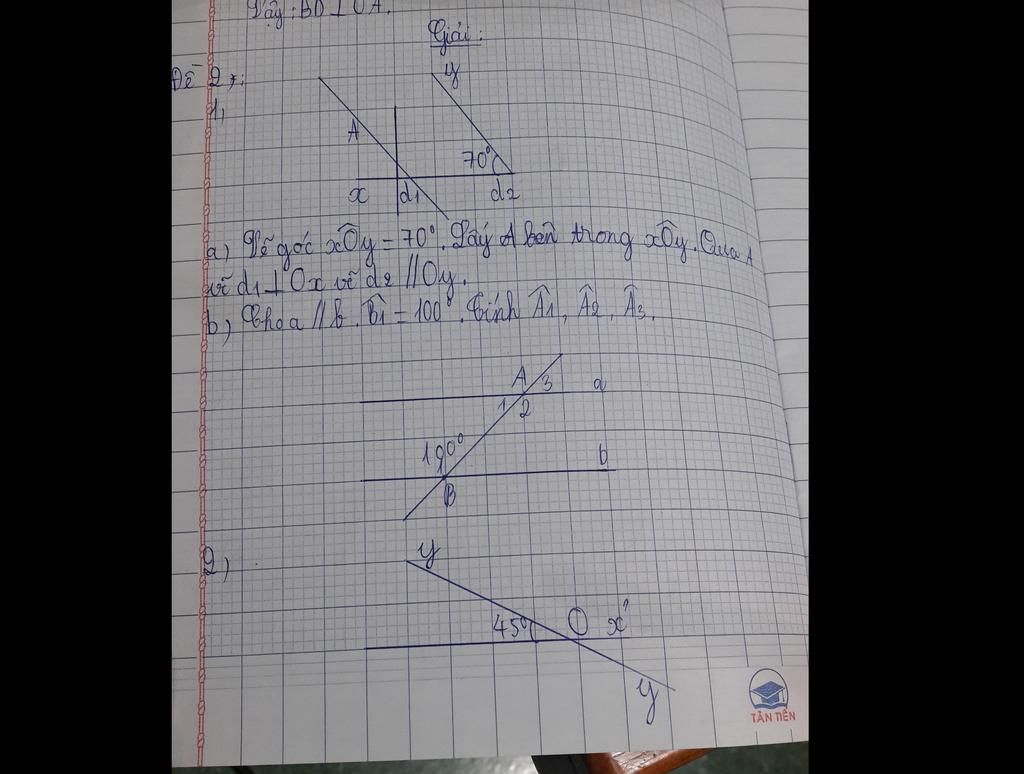 Vậy: BD ⊥ OA.
Giải:
Đề 2:
1,
y
A
70°
x d1 d2
a) Vẽ góc xÔy = 70°. Lấy A bên trong xÔy. Qua A
vẽ d1 ⊥ Ox vẽ d2 // Oy.
b) Cho a // b. B̂1 = 100°. Tính Â1, Â2, Â3.
A 3 a
1 2
100° b
B
2,
y
45° O x'
y
TÂN TIẾN